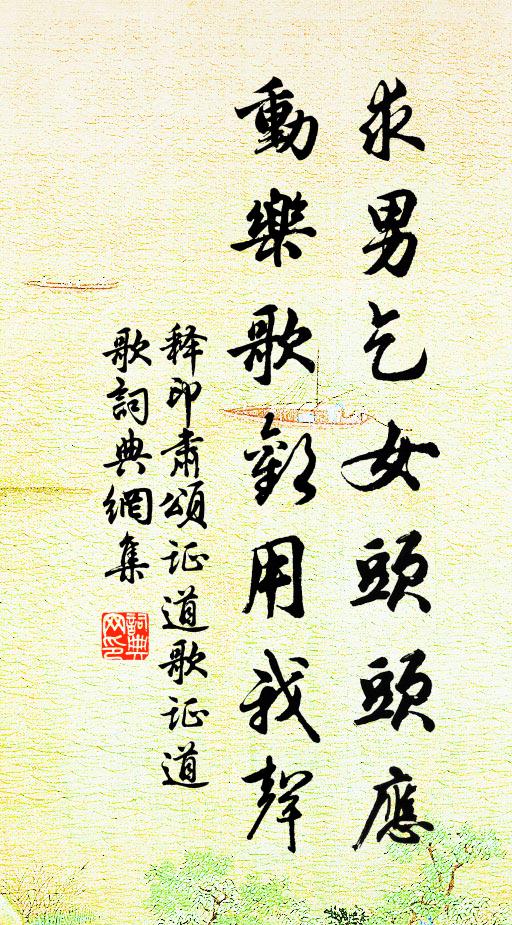 求男乞女頭頭應
動樂歌歡用我聲
释印肃頌证道歌证道
歌詞典網集
詞典
网印